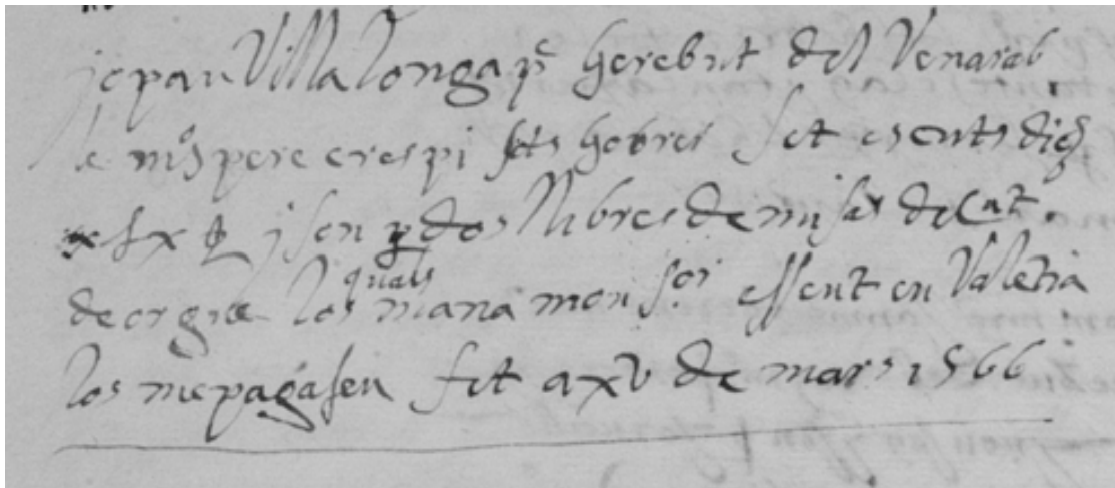 jo pau Villa longa pre he rebut del Venerab
le mos pere crespi sots hobrer set escuts dich
x s x & j son per dos llibres de misas de Cat
de orgue los quals mana mon sor essent en Valetia
los me pagasen fet a xv de mars 1566